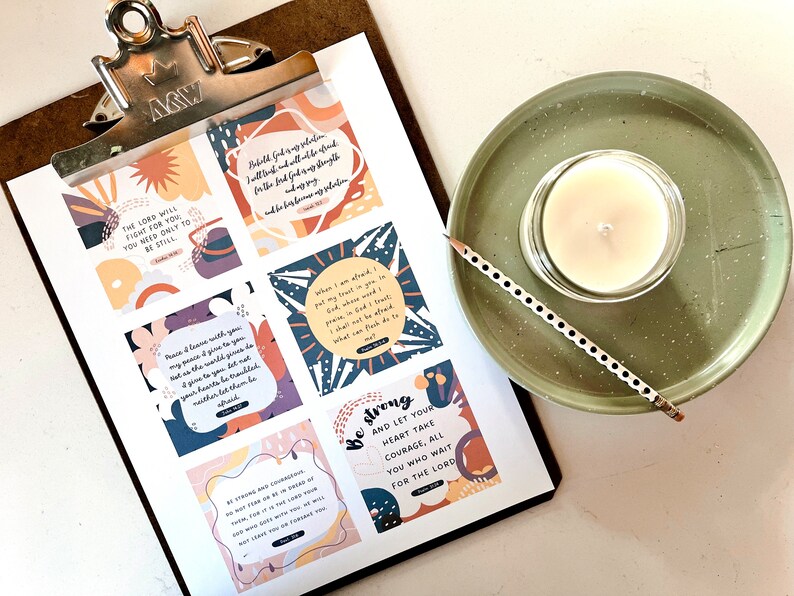 ASW
THE LORD WILL
FIGHT FOR YOU;
YOU NEED ONLY TO
BE STILL.
Exodus 14:14
Behold, God is my salvation,
I will trust, and will not be afraid;
for the Lord God is my strength
and my song,
and he has become my salvation
Isaiah 12:2
Peace I leave with you;
my peace I give to you.
Not as the world gives do
I give to you. Let not
your hearts be troubled,
neither let them be
afraid.
John 14:27
When I am afraid, I
put my trust in you. In
God, whose word I
praise, in God I trust;
I shall not be afraid.
What can flesh do to
me?
Psalm 56:3-4
BE STRONG AND COURAGEOUS.
DO NOT FEAR OR BE IN DREAD OF
THEM, FOR IT IS THE LORD YOUR
GOD WHO GOES WITH YOU. HE WILL
NOT LEAVE YOU OR FORSAKE YOU.
Deut. 31:6
Be strong
AND LET YOUR
HEART TAKE
COURAGE, ALL
YOU WHO WAIT
FOR THE LORD
Psalm 31:24